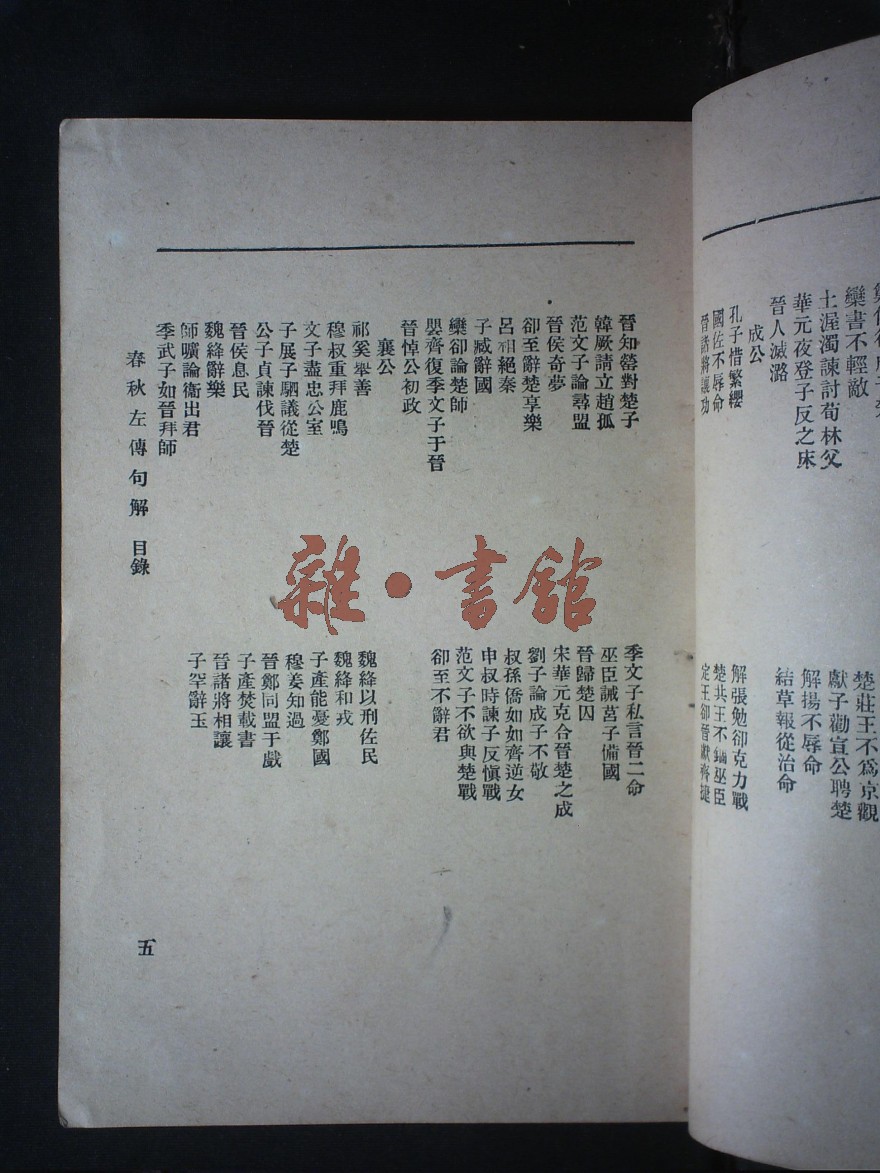 欒書不輕敵
士渥濁諫討荀林父
華元夜登子反之床
晉人滅潞
成公
孔子惜繁纓
國佐不辱命
晉諸將讓功
楚莊王不爲京觀
獻子勸宣公聘楚
解揚不辱命
結草報從治命
解張勉卻克力戰
楚共王不錮巫臣
定王卻晉獻齊捷
晉知罃對楚子
韓厥請立趙孤
范文子論尋盟
晉侯奇夢
卻至辭楚享樂
呂相絕秦
子臧辭國
欒卻論楚師
嬰齊復季文子于晉
晉悼公初政
襄公
祁奚舉善
穆叔重拜鹿鳴
文子盡忠公室
子展子駟議從楚
公子貞諫伐晉
晉侯息民
魏絳辭樂
師曠論衞出君
季武子如晉拜師
季文子私言晉二命
巫臣誡莒子備國
晉歸楚囚
宋華元克合晉楚之成
劉子論成子不敬
叔孫僑如如齊逆女
申叔時諫子反愼戰
范文子不欲與楚戰
卻至不辭君
魏絳以刑佐民
魏絳和戎
子產能憂鄭國
穆姜知過
晉鄭同盟于戲
子產焚載書
晉諸將相讓
子罕辭玉
春秋左傳句解 目錄
五
雜·書館